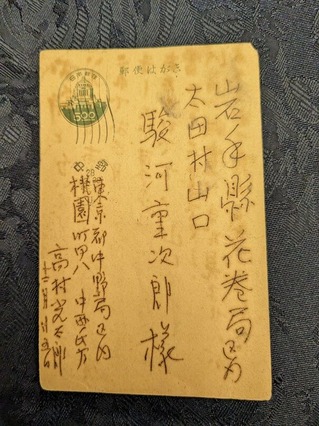 郵便はがき
岩手縣花巻局区内
太田村山口
駿河重次郎様
東京都中野局区内
桃園町四八
中西氏方
高村光太郎
十二月